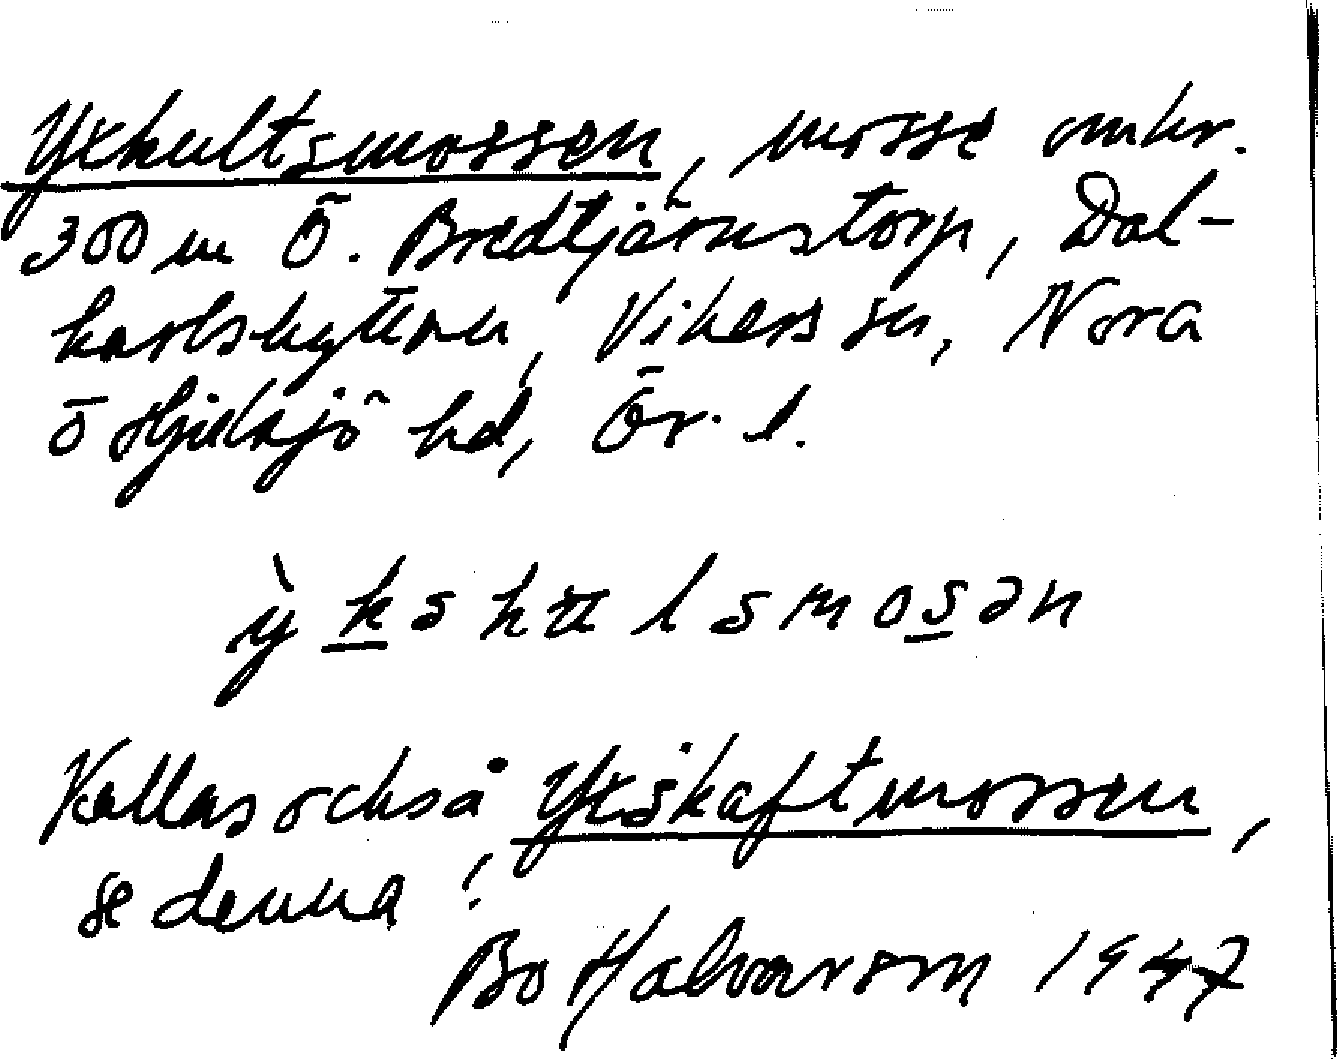 Yxhultsmossen, mosse omkr.
300 m Ö. Bredtjärnstorp, Dal-
karlshyttan, Vikers sn, Nora
o Hjulsjö hd, Ör. l.
ỳkshulsmosən
Kallas också Yxskaftmossen,
se denna!
Bo Halvarson 1947